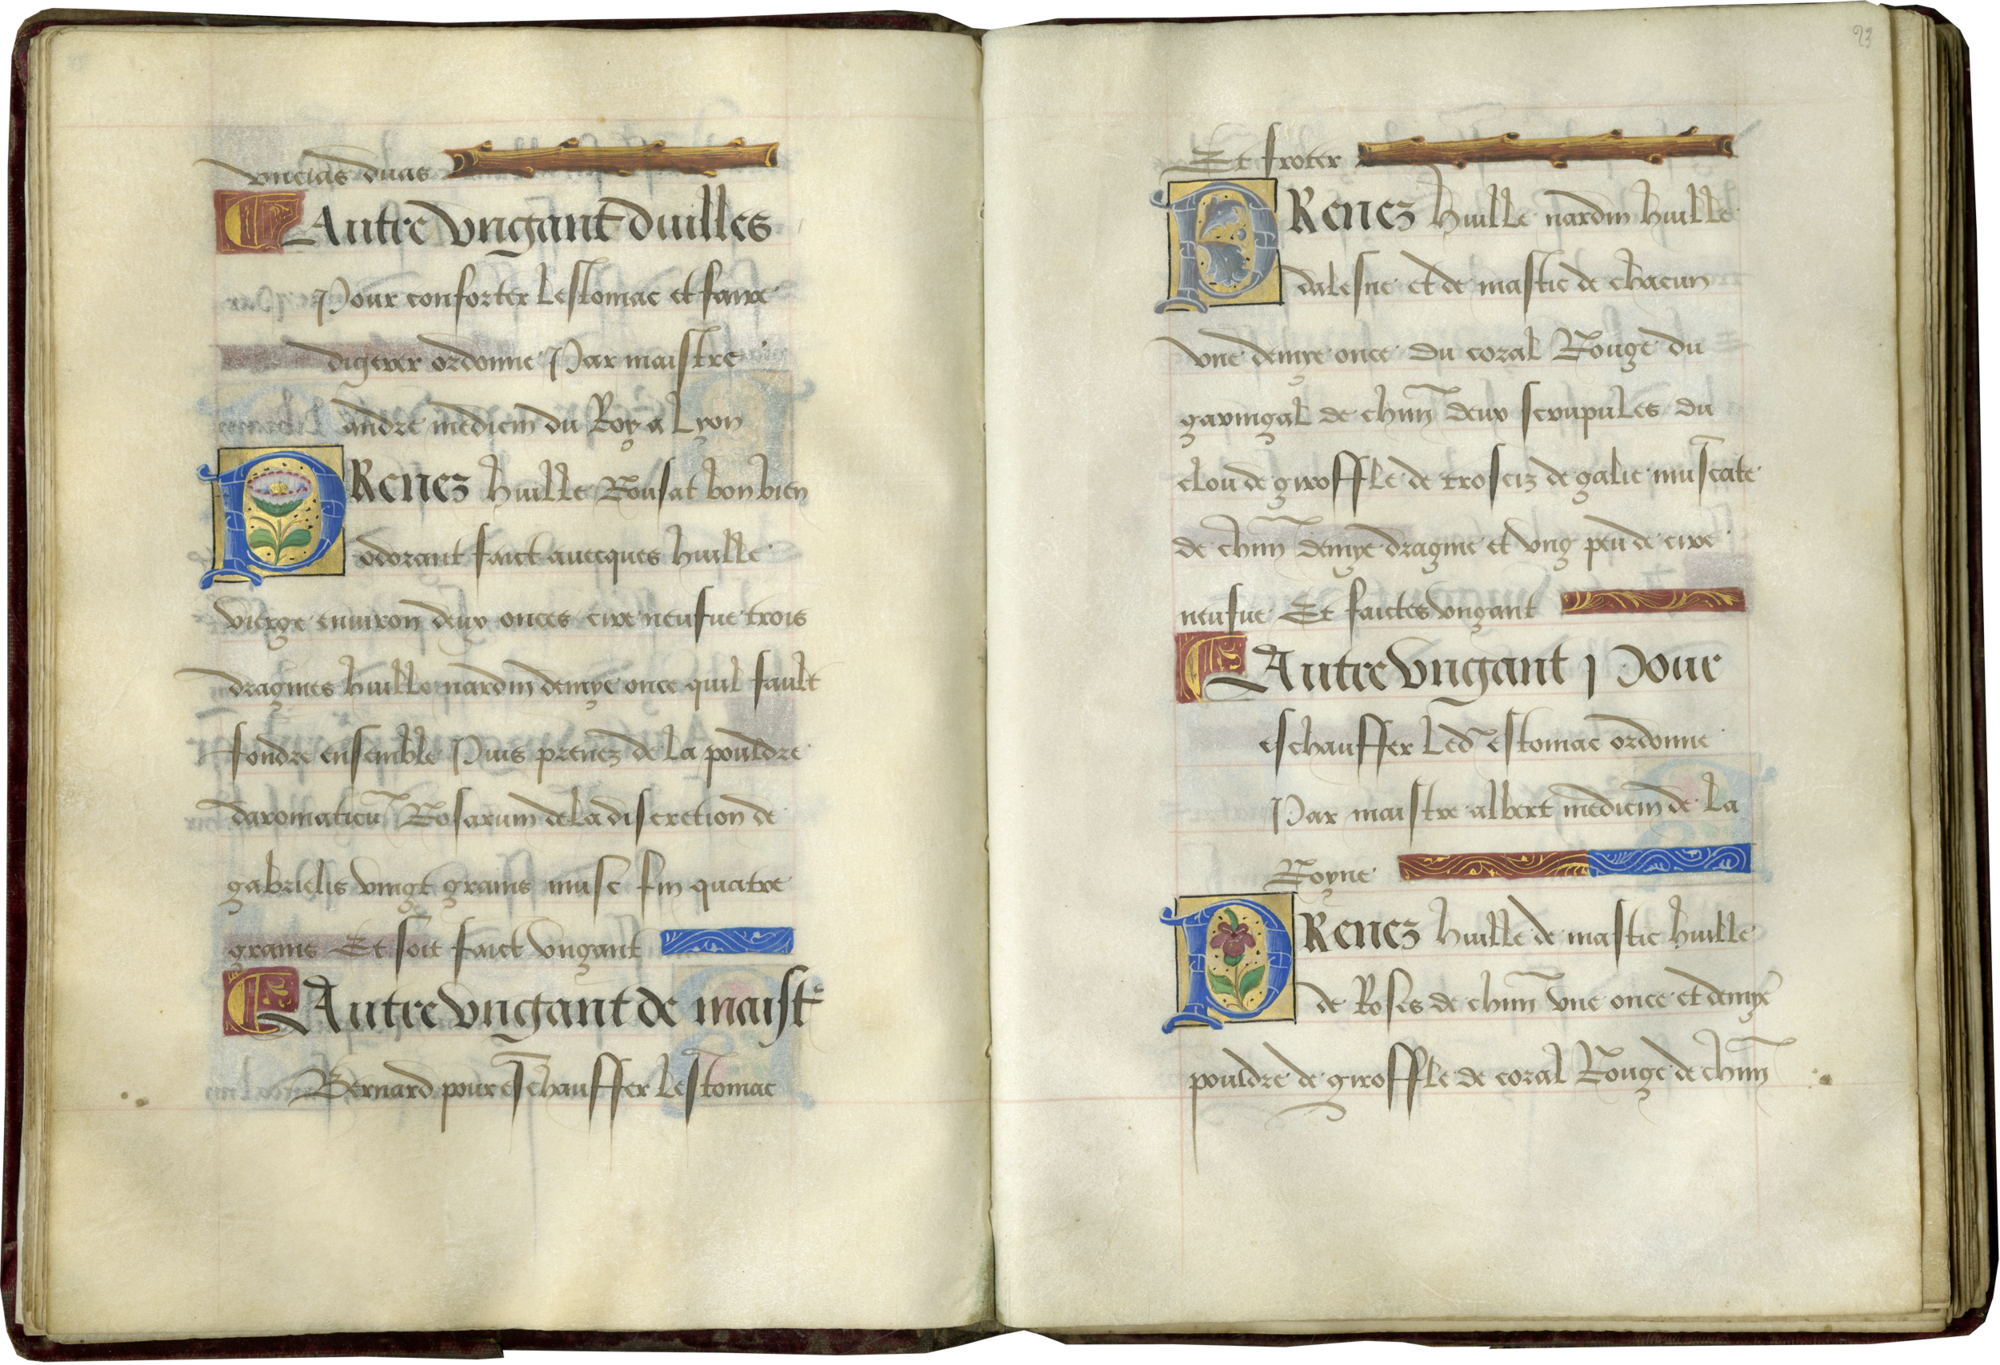 vncias duas
Autre vngant duilles
Pour conforter Lestomac et faire
digerer ordonne Par maistre
andre medicin du Roy a Lyon
PRenez huille Rousat bon bien
odorant faict auecques huille
vierge enuiron deux onces cire neufue trois
dragmes huille nardin demye once quil fault
fondre ensemble Puis prenez de La pouldre
daromaticu Rosarum de La discretion de
gabrielis vingt grains musc fin quatre
grains Et soit faict vngant
Autre vngant de maist
Bernard pour eschauffer Lestomac
23
Et froter
PRenez huille nardin huille
dalesne et de mastic de chacun
vne demye once Du coral Rouge du
garingal de chun deux scrupules du
clou de giroffle de trosciz de galie muscate
de chun demye dragme et vng peu de cire
neufue Et faictes vngant
Autre vngant Pour
eschauffer Led estomac ordonne
Par maistre albert medicin de La
Royne
PRenez huille de mastic huille
de Roses de chun vne once et demye
pouldre de giroffle de coral Rouge de chun